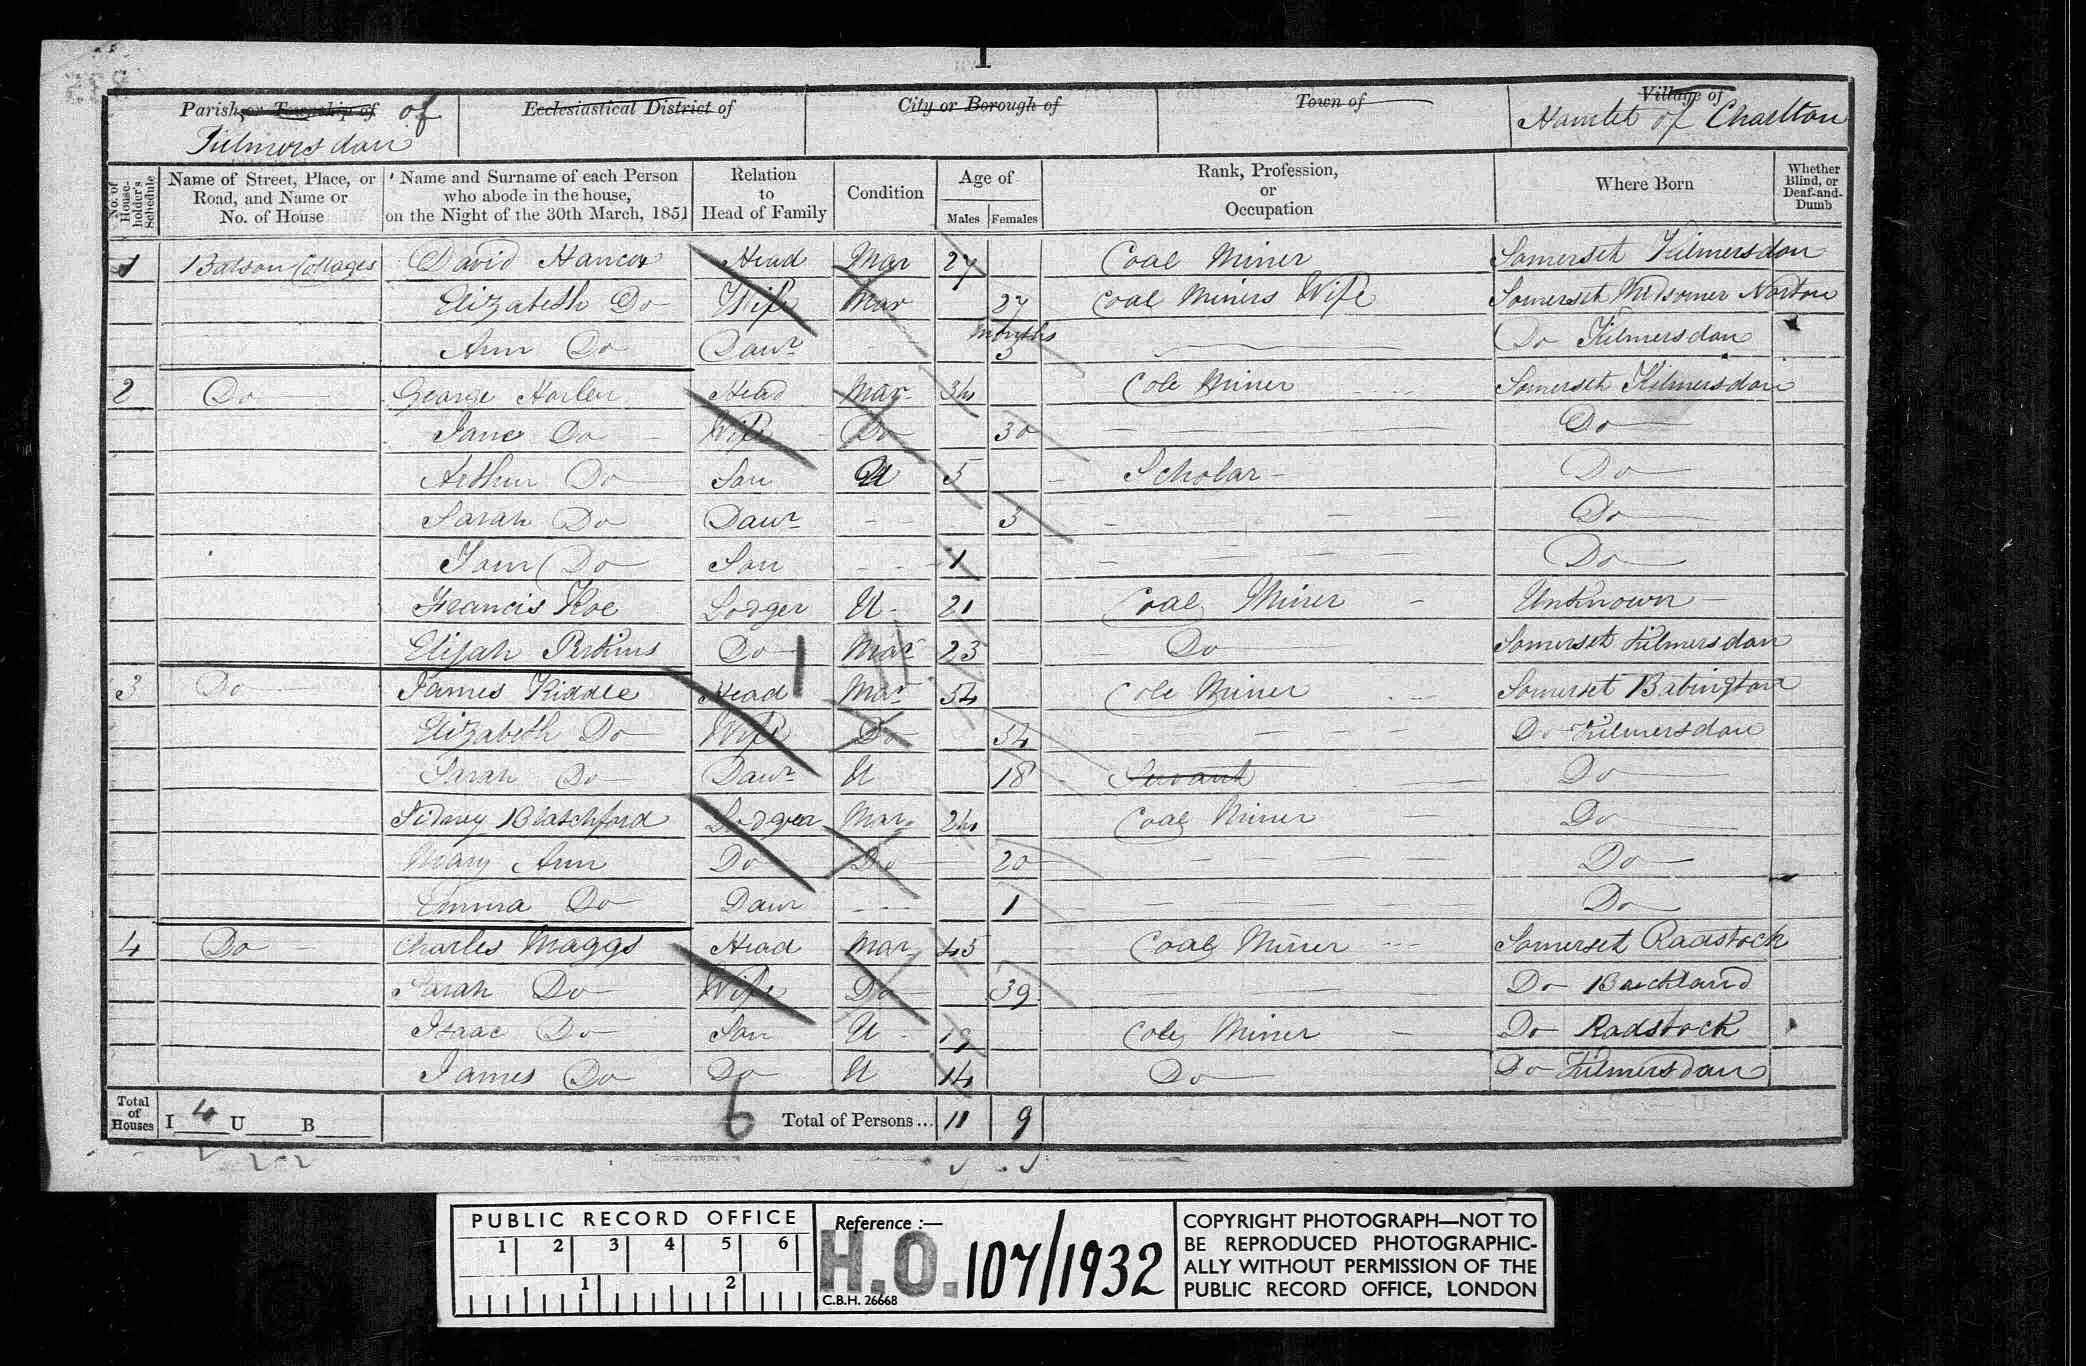 1
Parish or Township of of
Kilmersdon
Ecclesiastical District of
City or Borough of
Town of
Village of
Hamlet of Charlton
No. of House-holder's Schedule
Name of Street, Place, or Road, and Name or No. of House
Name and Surname of each Person who abode in the house, on the Night of the 30th March, 1851
Relation to Head of Family
Condition
Age of
Males Females
Rank, Profession, or Occupation
Where Born
Whether Blind, or Deaf-and-Dumb
1 Batson Cottages David Hancox Head Mar 27 Coal Miner Somerset Kilmersdon
Elizabeth Do Wife Mar 27 Coal Miners Wife Somerset Midsomer Norton
Ann Do Dawr months 3 Do Kilmersdon
2 Do George Horler Head Mar 34 Cole Miner Somerset Kilmersdon
Jane Do Wife Do 30 Do
Arthur Do Son U 5 Scholar Do
Sarah Do Dawr 3 Do
Do Son 1 Do
Francis Lodger U 21 Coal Miner Unknown
Elijah Perkins Do Mar 23 Do Somerset Kilmersdon
3 Do James Kiddle Head Mar 54 Cole Miner Somerset Babington
Elizabeth Do Wife Do 54 Do Kilmersdon
Sarah Do Dawr U 18 Servant Do
Sidney Blatchford Lodger Mar 24 Coal Miner Do
Mary Ann Do Do 20 Do
Emma Do Dawr 1 Do
4 Do Charles Maggs Head Mar 45 Coal Miner Somerset Radstock
Sarah Do Wife Do 39 Do Buckland
Isaac Do Son U 19 Cole Miner Do Radstock
James Do Do U 14 Do Do Kilmersdon
Total of Houses I 4 U B
6
Total of Persons... 11 9
PUBLIC RECORD OFFICE
1 2 3 4 5 6
1 2
Reference :—
H.O. 107/1932
C.B.H. 26668
COPYRIGHT PHOTOGRAPH—NOT TO
BE REPRODUCED PHOTOGRAPHIC-
ALLY WITHOUT PERMISSION OF THE
PUBLIC RECORD OFFICE, LONDON